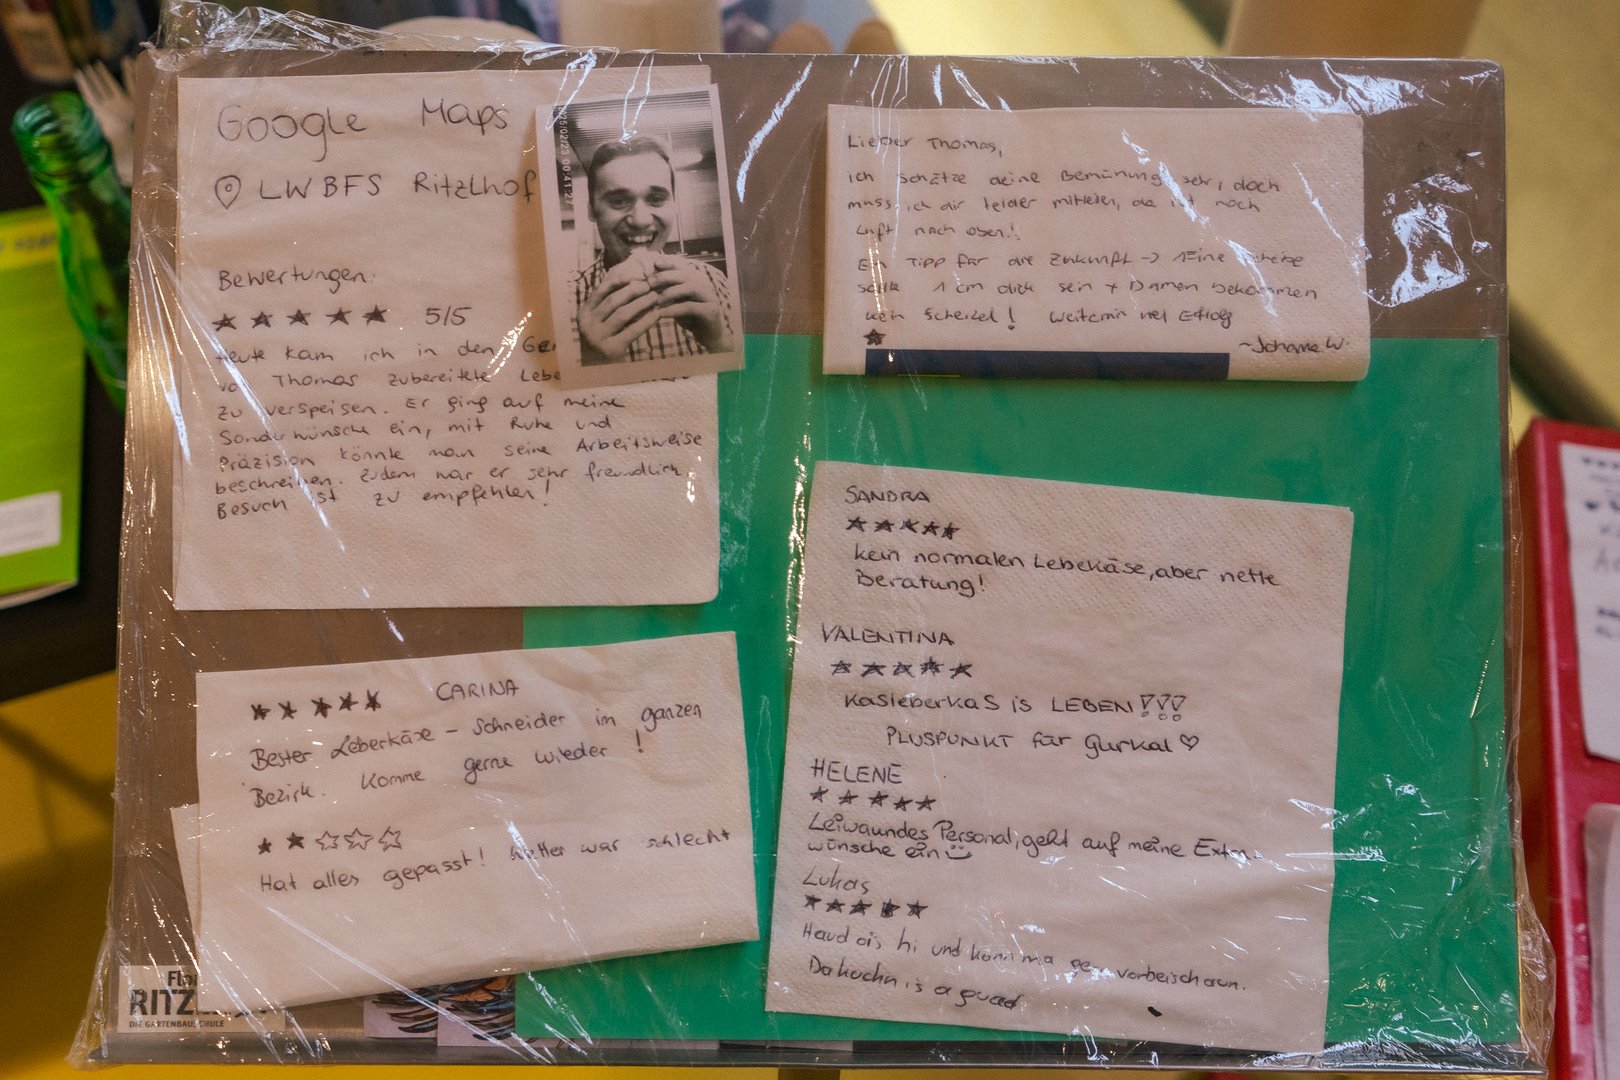 Google Maps
LWBFS Ritzlhof
Bewertungen:
5/5
Heute kam ich in den
von Thomas zubereitete
zu verspeisen. Er ging auf meine
Sonderwünsche ein, mit Ruhe und
Präzision könnte man seine Arbeitsweise
beschreiben. Zudem war er sehr freundlich.
Besuch ist zu empfehlen!
25/02/23 00:41:27
Lieber Thomas,
ich schätze deine Bemühung sehr, doch
muss ich dir leider mitteilen, da ist noch
Luft nach oben!
Ein Tipp für die Zukunft -> 1 Eine Scheibe
sollte 1cm dick sein + Damen bekommen
kein Scherzel! Weiterhin viel Erfolg
~Johanna W.
SANDRA
★★★★★
kein normalen Lebekäse, aber nette
Beratung!
VALENTINA
★★★★★
Kasleberkas is LEBEN!!!
PLUSPUNKT für Gurkal ♡
HELENE
★★★★★
Leiwaundes Personal, geht auf meine Extra-
wünsche ein
Lukas
★★★★★
Haud ois hi und konn ma gern vorbeischaun.
Da kochn is a guad
★★★★★ CARINA
Bester Leberkäse - Schneider im ganzen
Bezirk. Komme gerne wieder!
★★☆☆☆
Hat alles gepasst! Wetter war schlecht
RITZ
DIE GARTENBAUSCHULE